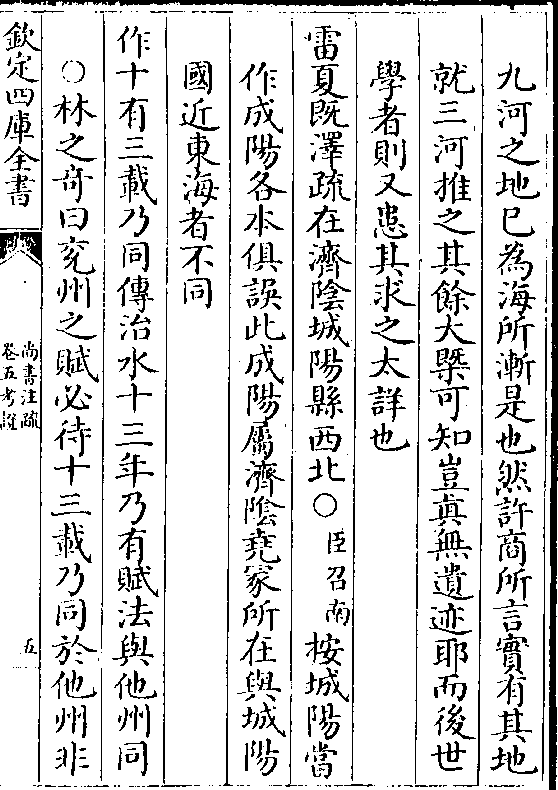 九河之地已為海所漸是也然許商所言實有其地
就三河推之其餘大槩可知豈真無遺迹耶而後世
學者則又患其求之太詳也
雷夏既澤疏在濟陰城陽縣西北○臣召南按城陽當
作成陽各本俱誤此成陽屬濟陰堯冢所在與城陽
國近東海者不同
作十有三載乃同傳治水十三年乃有賦法與他州同
○林之奇曰兖州之賦必待十三載乃同於他州非
欽定四庫全書
尚書注疏
卷五考證
五